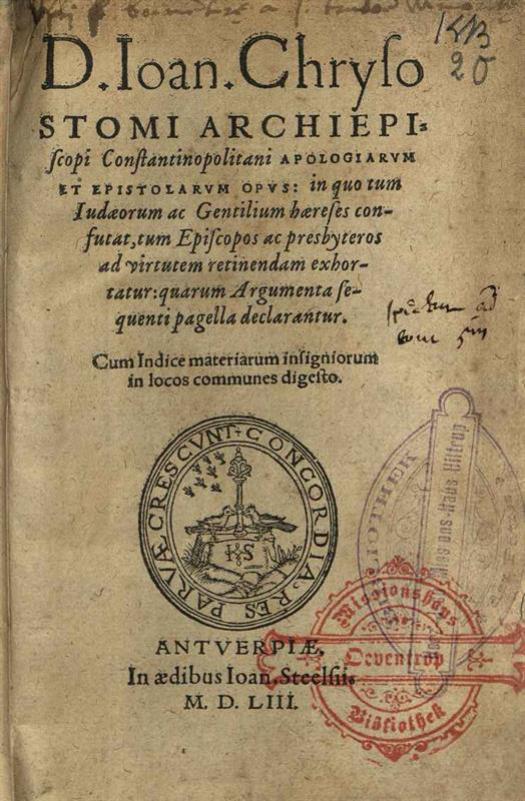 KB
20
D. Ioan. Chryſo
STOMI ARCHIEPI-
ſcopi Conſtantinopolitani APOLOGIARVM
ET EPISTOLARVM OPVS: in quo tum
Iudæorum ac Gentilium hæreſes con-
futat, tum Epiſcopos ac presbyteros
ad virtutem retinendam exhor-
tatur: quarum Argumenta ſe-
quenti pagella declarantur.
Cum Indice materiarum inſigniorum
in locos communes digeſto.
CONCORDIA RES PARVÆ CRESCVNT
HS
BIBLIOTHEK
Missionshaus Hiltrup
ANTVERPIÆ,
In ædibus Ioan. Steelſii.
M. D. LIII.
Missionshaus
Oeventrop
Bibliothek